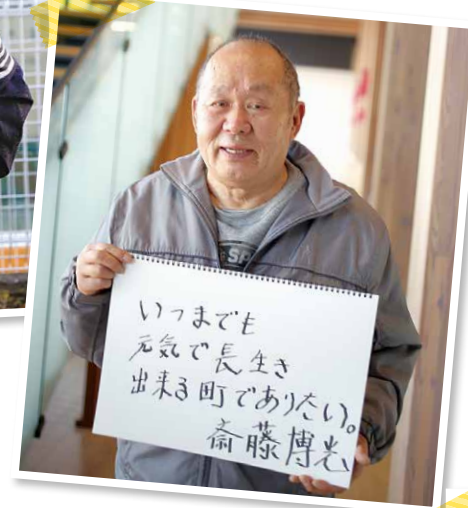 いつまでも
元気で長生き
出来る町でありたい。
斎藤博光